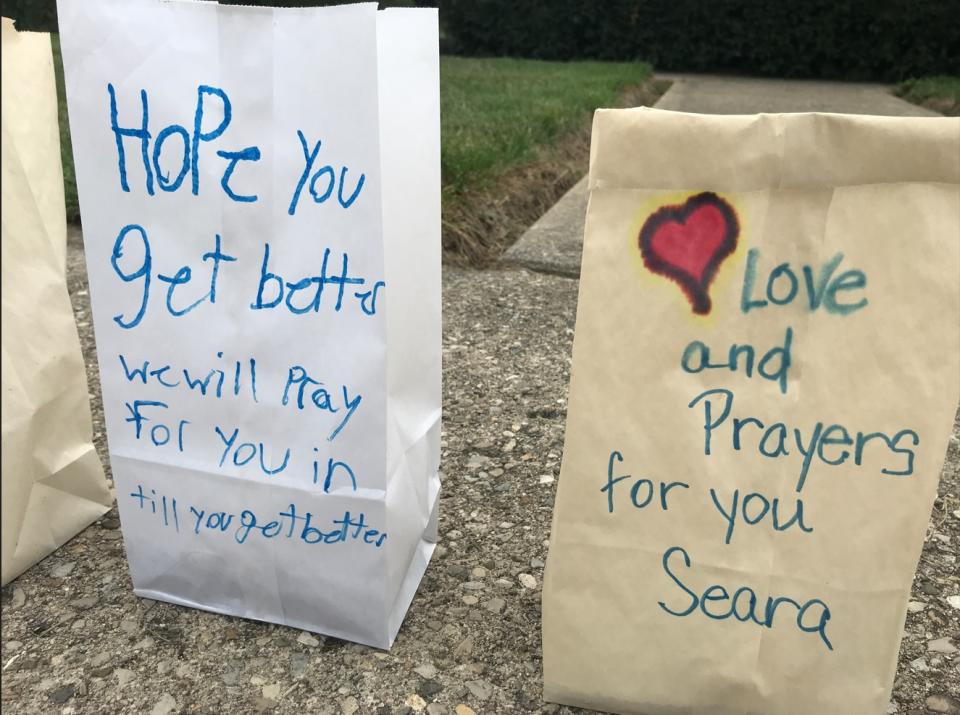 HoPe You
get better
we will Pray
For You in
till you get better
Love
and
Prayers
for you
Seara